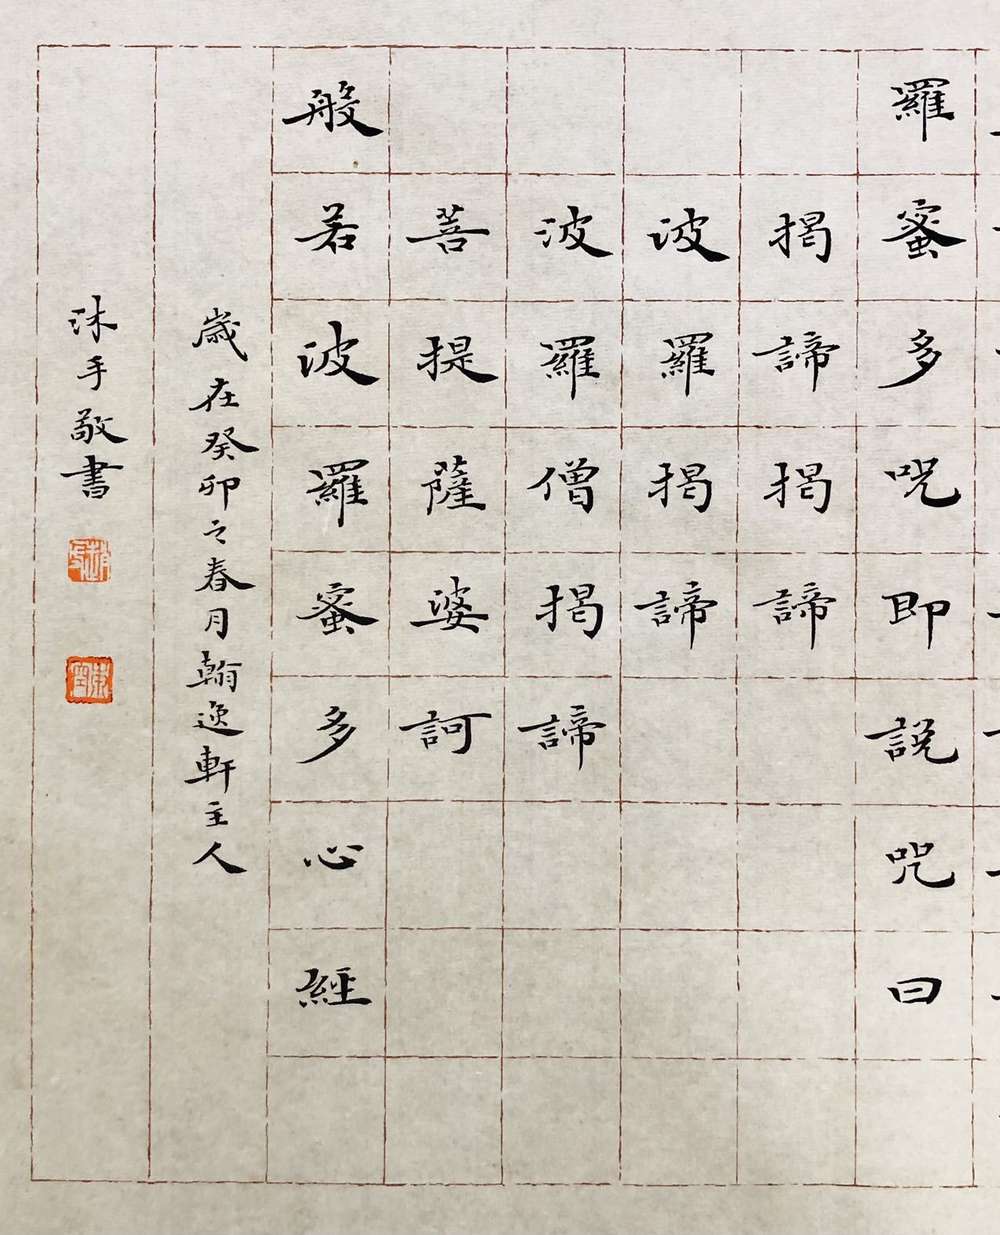 羅蜜多呪即說呪曰
揭諦揭諦
波羅揭諦
波羅僧揭諦
菩提薩婆訶
般若波羅蜜多心經
歲在癸卯之春月翰逸軒主人
沐手敬書